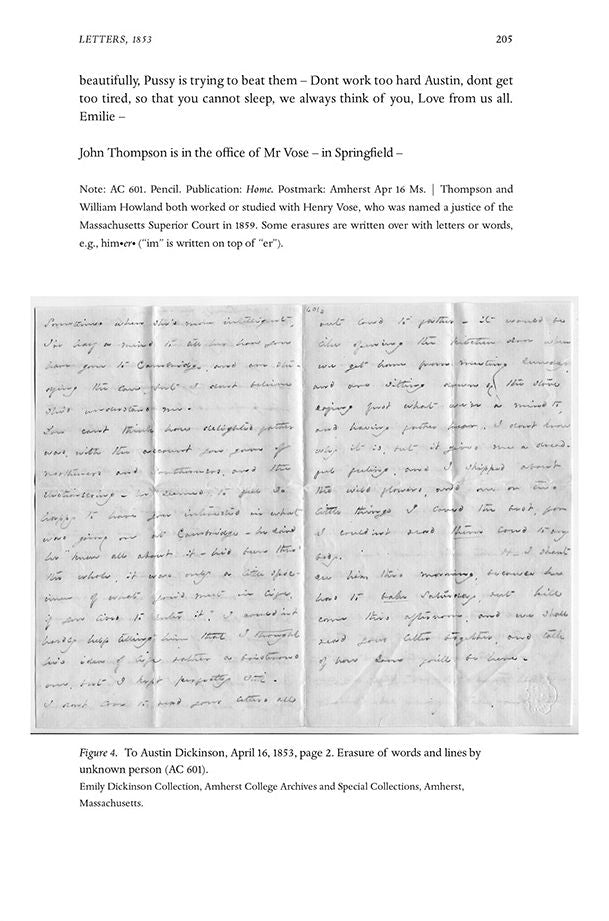 LETTERS, 1853 205
beautifully, Pussy is trying to beat them – Dont work too hard Austin, dont get
too tired, so that you cannot sleep, we always think of you, Love from us all.
Emilie –
John Thompson is in the office of Mr Vose – in Springfield –
Note: AC 601. Pencil. Publication: Home. Postmark: Amherst Apr 16 Ms. | Thompson and
William Howland both worked or studied with Henry Vose, who was named a justice of the
Massachusetts Superior Court in 1859. Some erasures are written over with letters or words,
e.g., him•er• (“im” is written on top of “er”).
Sometimes when she's more intelligent,
I've half a mind to tell her how you
have gone to Cambridge, and are stu-
dying the law, but I dont believe
she'd understand me.
You cant think how delighted father
was, with the account you gave of
northerners and southerners, and the
electioneering – he seemed to feel so
happy to have you interested in what
was going on at Cambridge – he said
he "knew all about it – he'd been thro'
the whole, it was only a little spec-
imen of what you'd meet in life,
if you lived to enter it." I could'nt
hardly help telling him that I thought
his idea of life rather a boisterous
one, but I kept perfectly still.
I dont love to read your letters all
out loud to father – it would be
like opening the kitchen door when
we get home from meeting Sunday,
and are sitting down by the stove
saying just what we're a mind to,
and having father hear. I dont know
why it is, but it gives me a dread-
ful feeling, and I skipped about
the wild flowers, and one or two
little things I loved the best, for
I could'nt read them loud to any
body.
I shant
see him this morning, because he
has to bake Saturday, but he'll
come this afternoon, and we shall
read your letter together, and talk
of how soon you'll be here.
Figure 4. To Austin Dickinson, April 16, 1853, page 2. Erasure of words and lines by
unknown person (AC 601).
Emily Dickinson Collection, Amherst College Archives and Special Collections, Amherst,
Massachusetts.